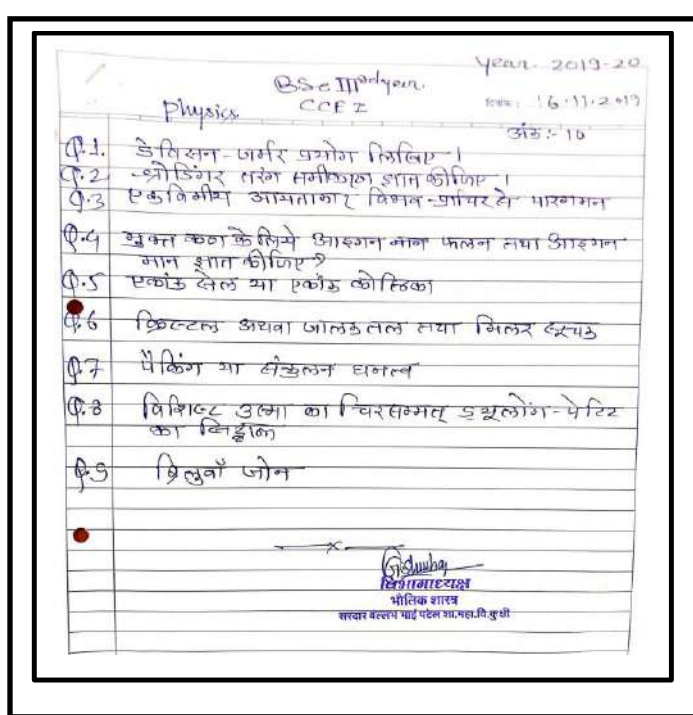 Year- 2019-20
BSc IIIrd year.
Physics CCE I दिनांक: 16.11.2019
अंक:- 10
Q.1. डेविसन-जर्मर प्रयोग लिखिए।
Q.2 श्रोडिंगर तरंग समीकरण ज्ञात कीजिए।
Q.3 एकविमीय आयताकार विभव-प्राचिर से पारगमन
Q.4 मुक्त कण के लिये आइगन मान फलन तथा आइगन
मान ज्ञात कीजिए?
Q.5 एकांक सेल या एकांक कोष्ठिका
Q.6 क्रिस्टल अथवा जालक तल तथा मिलर सूचक
Q.7 पैकिंग या संकुलन घनत्व
Q.8 विशिष्ट उष्मा का चिरसम्मत् ड्यूलोंग-पेटिट
का सिद्धान्त
Q.9 ब्रिलुवाँ जोन
विभागाध्यक्ष
भौतिक शास्त्र
सरदार वल्लभ भाई पटेल शा.महा.वि.कुक्षी